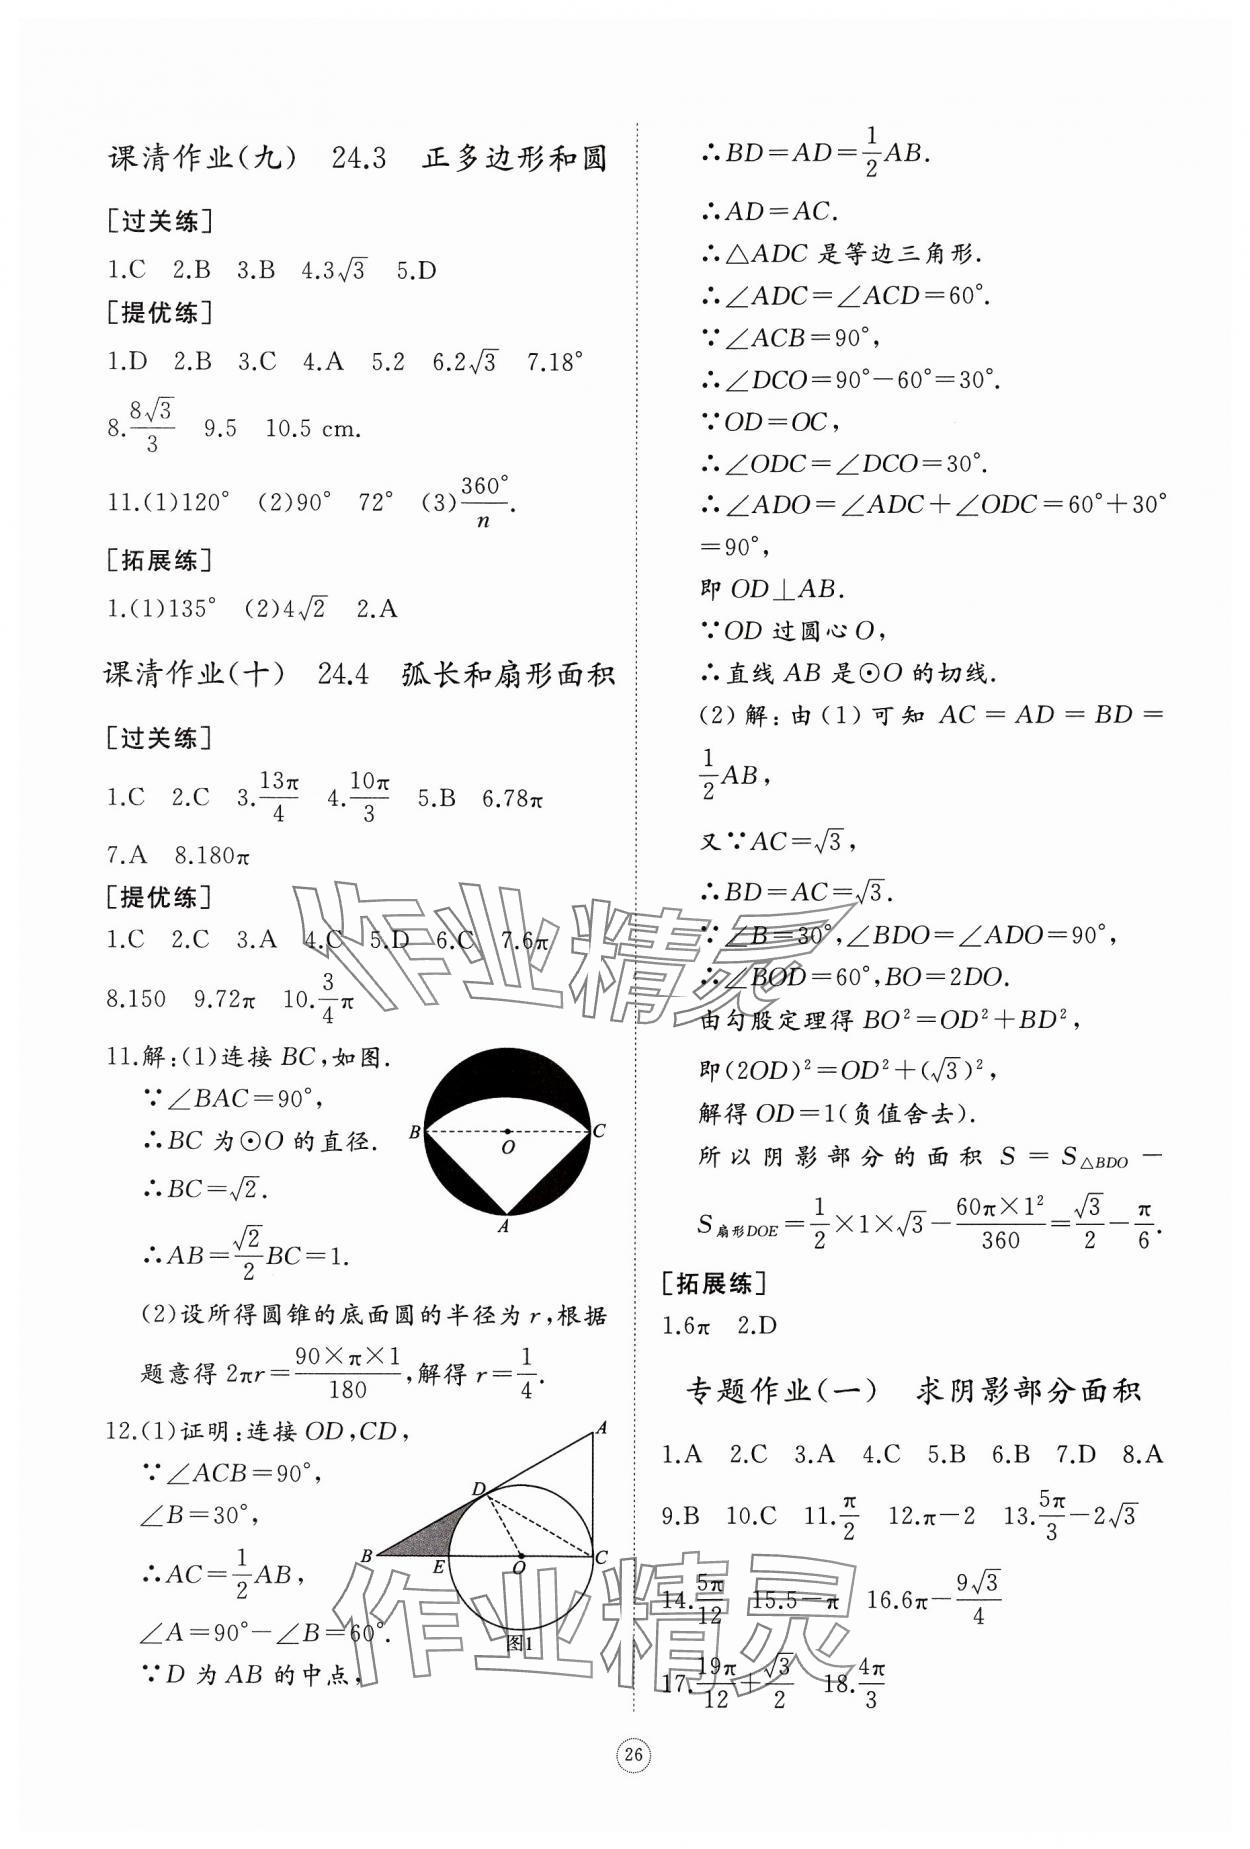 课清作业(九) 24.3 正多边形和圆
[过关练]
1.C 2.B 3.B 4.3√3 5.D
[提优练]
1.D 2.B 3.C 4.A 5.2 6.2√3 7.18°
8.8√3/3 9.5 10.5 cm.
11.(1)120° (2)90° 72° (3)360°/n.
[拓展练]
1.(1)135° (2)4√2 2.A
课清作业(十) 24.4 弧长和扇形面积
[过关练]
1.C 2.C 3.13π/4 4.10π/3 5.B 6.78π
7.A 8.180π
[提优练]
1.C 2.C 3.A 4.C 5.D 6.C 7.6π
8.150 9.72π 10.3/4π
11.解:(1)连接 BC,如图.
∵∠BAC=90°,
∴BC 为⊙O 的直径.
∴BC=√2.
∴AB=√2/2BC=1.
B O C
A
(2)设所得圆锥的底面圆的半径为 r,根据
题意得 2πr=90×π×1/180,解得 r=1/4.
12.(1)证明:连接 OD,CD,
∵∠ACB=90°,
∠B=30°,
∴AC=1/2AB,
∠A=90°-∠B=60°.
∵D 为 AB 的中点,
A
D
B E O C
图1
∴BD=AD=1/2AB.
∴AD=AC.
∴△ADC 是等边三角形.
∴∠ADC=∠ACD=60°.
∵∠ACB=90°,
∴∠DCO=90°-60°=30°.
∵OD=OC,
∴∠ODC=∠DCO=30°.
∴∠ADO=∠ADC+∠ODC=60°+30°
=90°,
即 OD⊥AB.
∵OD 过圆心 O,
∴直线 AB 是⊙O 的切线.
(2)解:由(1)可知 AC=AD=BD=
1/2AB,
又∵AC=√3,
∴BD=AC=√3.
∵∠B=30°,∠BDO=∠ADO=90°,
∴∠BOD=60°,BO=2DO.
由勾股定理得 BO²=OD²+BD²,
即(2OD)²=OD²+(√3)²,
解得 OD=1(负值舍去).
所以阴影部分的面积 S=S△BDO-
S扇形DOE=1/2×1×√3-60π×1²/360=√3/2-π/6.
[拓展练]
1.6π 2.D
专题作业(一) 求阴影部分面积
1.A 2.C 3.A 4.C 5.B 6.B 7.D 8.A
9.B 10.C 11.π/2 12.π-2 13.5π/3-2√3
14.5π/12 15.5-π 16.6π-9√3/4
17.19π/12+√3/2 18.4π/3
26
作业精灵
作业精灵